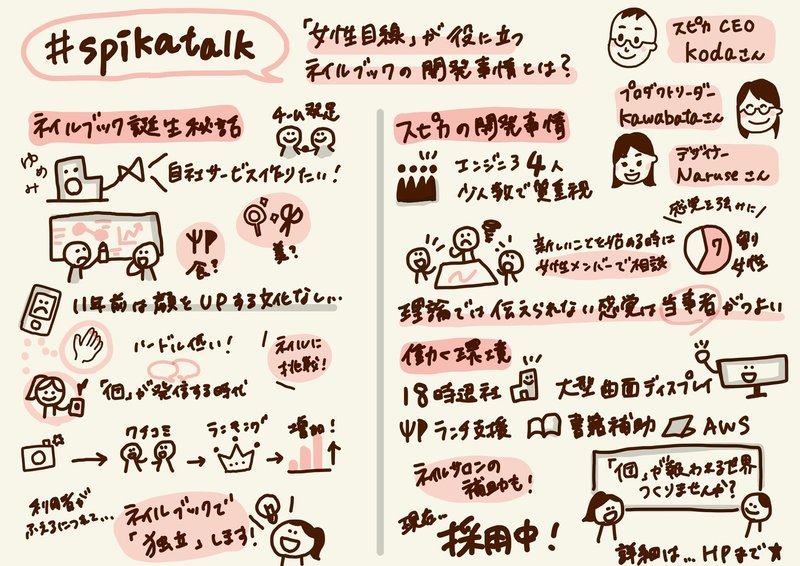 #spikatalk
「女性目線」が役に立つ
ネイルブックの開発事情とは?
スピカ CEO
kodaさん
プロダクトリーダー
kawabataさん
デザイナー
Naruseさん
ネイルブック誕生秘話
チーム発足
ゆめみ
自社サービス作りたい!
食?
美?
11年前は顔をUPする文化なし...
ハードル低い!
ネイルに
挑戦!
「個」が発信する時代
クチコミ
ランキング
増加!
利用者が
ふえるにつれて...
ネイルブックで
「独立」します!
スピカの開発事情
エンジニア4人
少人数で質重視
新しいことを始める時は
女性メンバーで相談
感覚を強みに
7割
女性
理論では伝えられない感覚は当事者がつよい
働く環境
18時退社
大型曲面ディスプレイ
ランチ支援
書籍補助
AWS
ネイルサロンの
補助も!
現在..
採用中!
「個」が救われる世界
つくりませんか?
詳細は...HPまで★